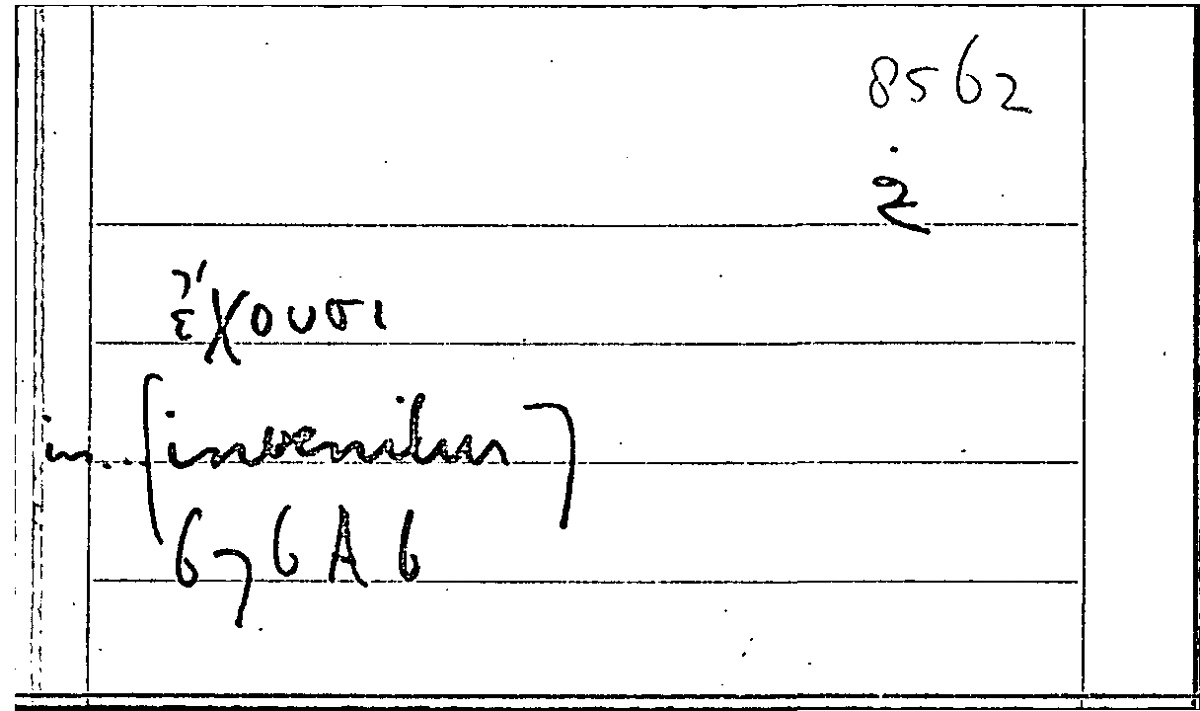 8562
2
ἔχουσι
in.. [invenitur]
676A6